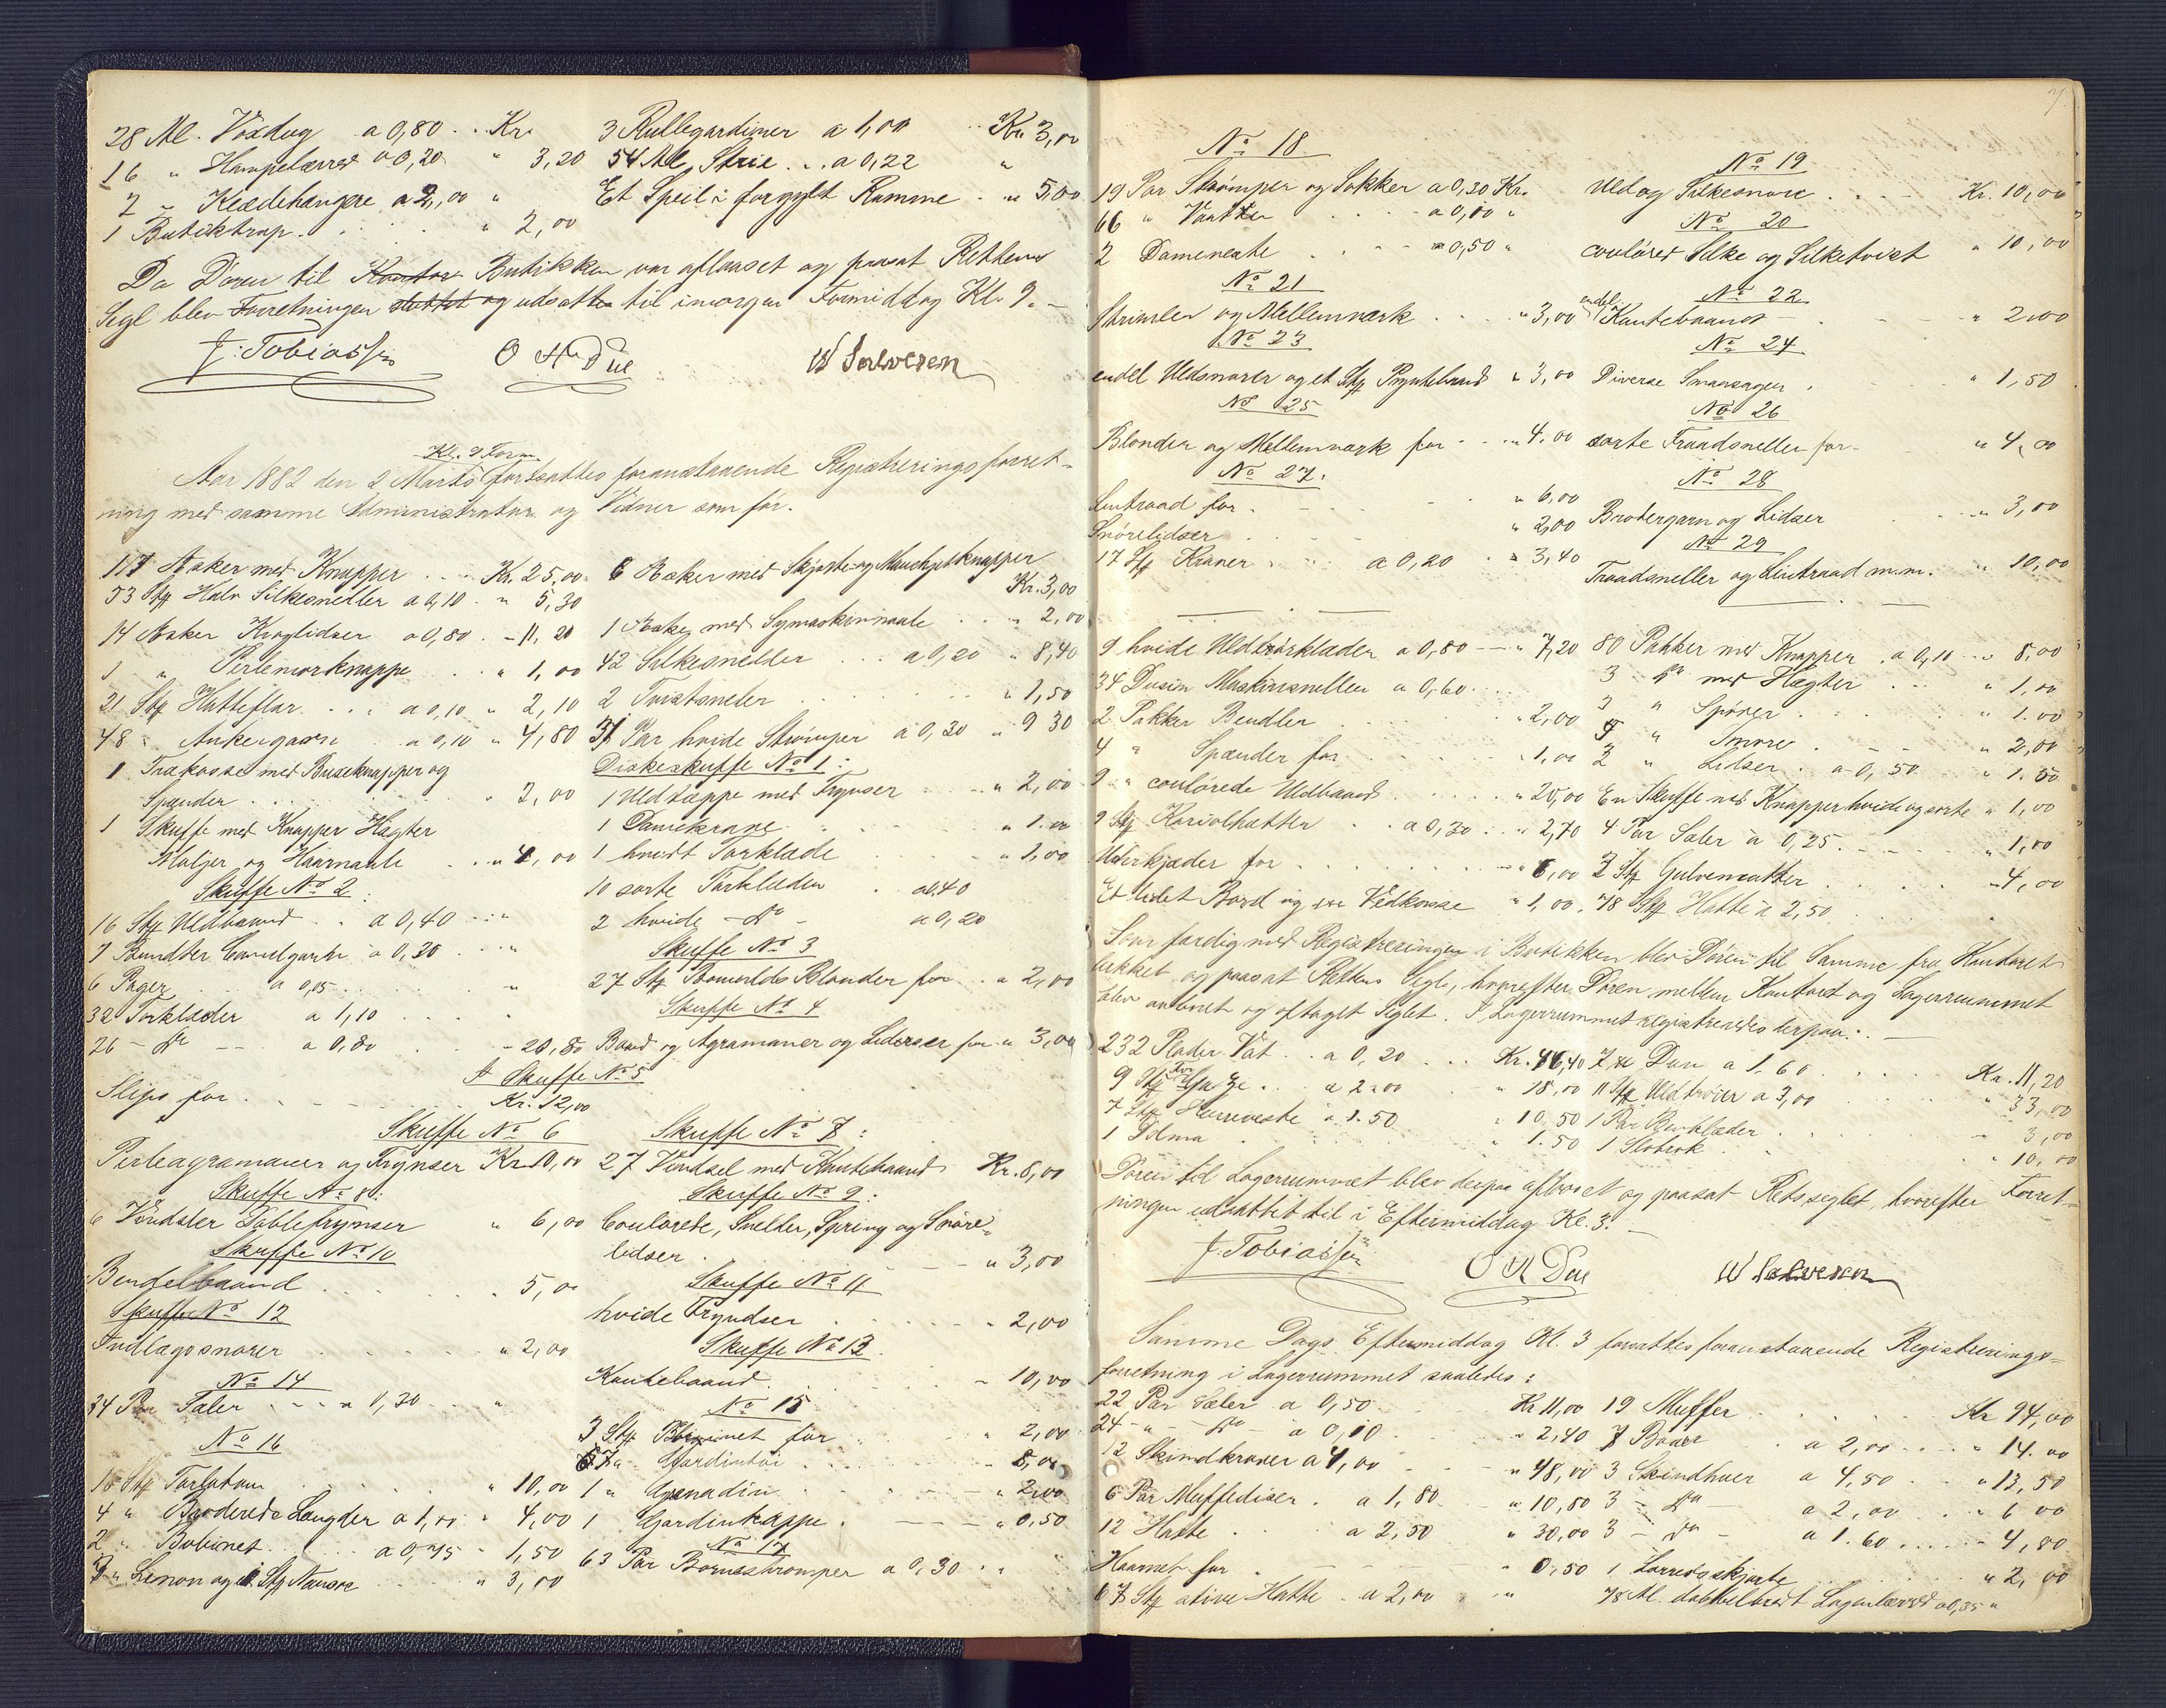 28 Al. Voxdug a 0,80 . . Kr.
16 " Hampelærred a 0,20 " 3,20
2 " Klædehængere a 2,00 "
1 Butiktrap . . . . " 2,00
3 Rullegardiner a 1,00 . . Kr 3,00
54 Al. Strie . . a 0,22 "
Et Speil i forgyldt Ramme . " 5,00
Da Døren til Kontor Butikken var aflaaset og paasat Rettens
Segl blev Forretningen sluttet og udsatte til imorgen Formiddag Kl. 9. —
J. Tobiassen O H Due W Salvesen
Kl. 9 Form.
Aar 1882 den 2 Marts fortsattes foranstaaende Registreringsforret-
ning med samme Administrator og Vidner som før.
117 Æsker med Knapper . . . Kr. 25,00
53 Stk Halv Silkesneller a 0,10 . " 5,30
14 Æsker Kraglidser a 0,80 . - 11,20
1 " Perlemorknappe . . " 1,00
21 Stk Hatteflor . . . a 0,10 " 2,10
48 " Ankergarn a 0,10 " 4,80
1 Trækasse med Buxeknapper og
Spænder . . . . " 2,00
1 Skuffe med Knapper Hægter
Maljer og Haarnaale . . " 4,00
Skuffe No 2 :
16 Stk Uldbaand . . a 0,40 . . . "
7 Bundter Camelgarn a 0,20 . . . "
6 Pager . . a 0,05 . . . "
32 Tørklæder a 1,10 . . .
26 - do -- a 0,80 . . - 20,80
6 Æsker med Skjorte og Manchetknapper
Kr. 3,00
1 Æske med Symaskinnaale . . . " 2,00
42 Silkesneller . . . a 0,20 " 8,40
2 Tvistsneller . . . " 1,50
31 Par hvide Strømper a 0,30 " 9 30
Diskeskuffe No 1 :
1 Uldtæppe med Frynser . . . " 2,00
1 Damekrave . . . " 1.00
1 hvidt Tørklæde . . . " 1,00
10 sorte Tørklæder . a 0,40
2 hvide - do - a 0,20
Skuffe No 3
27 Stk Bomulds Blonder for . . " 2,00
Skuffe No 4
Baand og Agramaner og Lidser for " 3,00
I Skuffe No 5
Slips for . . . Kr. 12,00
Skuffe No 6
Perleagramaner og Frynser Kr. 10,00
Skuffe No 7 :
27 Vindsel med Kantebaand Kr. 8,00
Skuffe No 8 :
6 Vindsler Dablefrynser " 6,00
Skuffe No 9 :
Coulørede, Sneller, Spring og Snøre-
lidser . . . " 3,00
Skuffe No 10
Bendelbaand . . . . 5,00
Skuffe No 11
hvide Fryndser . . . . " 2,00
Skuffe No 12
Indlægssnorer . . . . " 2,00
Skuffe No 13
Kantebaand . . . . - 10,00
No 14
34 Par Saler . . . a 0,30 . . "
No 15
3 Stk Bobinet for . . " 2,00
7 " Gardintøi . . . " 8,00
1 " Grenadin . . . " 2,00
1 Gardinkappe . . . " 0,50
No 16
16 Stk Tarlatan . . . " 10,00
4 " Broderede Længder a 1,00 " 4,00
2 " Bobinet . . . a 0,75 " 1,50
7 " Linon og 1 Stk Nansoc . . " 3,00
No 17
63 Par Børnestrømper a 0,30 . "
7.
No 18
19 Par Strømper og Sokker a 0,30 Kr.
66 " Vanter . . . a 0,10 "
2 Dameveste . . . a 0,50 "
No 19
Uld og Silkesnore . . . Kr. 10,00
No 20
couløret Silke og Silketvist " 10,00
No 21
Strimler og Mellemværk . . . " 3,00
No 22
endel Kantebaand . . . " 2,00
No 23
endel Uldsnorer og et Stk Pyntebaand " 3,00
No 24
Diverse Smaasager . . . " 1,50
No 25
Blonder og Mellemværk for . . . " 4.00
No 26
sorte Traadsneller for . " 4,00
No 27.
Lintraad for . . . " 6,00
Snørelidser . . . " 2,00
17 Stk Kraner . . . a 0,20 . " 3,40
No 28
Brodergarn og Lidser . . . " 3,00
No 29
Traadsneller og Lintraad m.m. " 10,00
9 hvide Uldtørklæder a 0,80 — " 7,20
34 Dusin Maskinsneller a 0,60 . . .
2 Pakker Bendler . . . " 2,00
4 " Spænder for . . . " 1,00
9 " coulørede Uldbaand . . . " 20,00
9 Stk Kariolhatter . . a 0,30 . . " 2,70
Underkjæder for . . . " 6,00
Et lidet Bord og en Vedkasse " 1,00.
80 Pakker med Knapper . a 0,10 . . " 8,00
3 do med Hægter . . . " 1,00
3 " Spører . . . " 1.00
" Snore . . . " 2,00
3 " Lidser . a 0,50 . " 1.50
En Skuffe med Knapper hvide og sorte " 1,00
4 Par Saler a 0,25 . . . " 1,00
2 Stk Gulvmatter . . . " 4,00
78 Stk Hatte a 2,50 . . .
Som færdig med Registreringen i Butikken blev Døren til Samme fra Kontoret
lukket og paasat Rettens Segl, hvorefter Døren mellem Kontoret og Lagerrummet
blev aabnet og aftaget Seglet. I Lagerrummet registreredes derpaa: —
232 Plader Vat . . a 0,20 . . . Kr. 46,40
9 Stk Gaze . . . a 2.00 " 18,00
7 Stk Herreveste a 1.50 " 10,50
1 Dolma . . . " 1.50
7 Dun a 1.60 . . . Kr. 11,20
11 Stk Uldtrøier a 3,00 . . . " 33,00
1 Par Benklæder . . . " 3,00
1 Slobrok . . . " 10,00
Døren til Lagerrummet blev derpaa aflaaset og paasat Retsseglet, hvorefter Forret-
ningen udsattes til i Eftermiddag Kl. 3. —
J. Tobiassen O H Due W Salvesen
Samme Dags Eftermiddag Kl. 3 forsattes foranstaaende Registrerings-
forretning i Lagerrummet saaledes :
22 Par Sæler a 0,50 . . . Kr 11,00
24 " - do - a 0,10 . . . " 2,40
12 Skindkraver a 4,00 . . " 48,00
6 Par Muffediser . a 1,80 . . " 10,80
12 Hatte . . . a 2,50 " 30,00
Haarnet for . . . " 0,50
67 Stk stive Hatte . a 2,00 . . "
19 Muffer . . . Kr 94,00
7 Boaer . . a 2,00 . . . " 14.00
3 Skindhuer a 4,50 . . " 13,50
3 - do - a 2,00 . . " 6 00
3 - do - a 1.60 . . . . 4,80
1 Lærredsskjorte . . . " 2,00
78 Al. dobbeltbredt Lagenlærred a 0,35 "